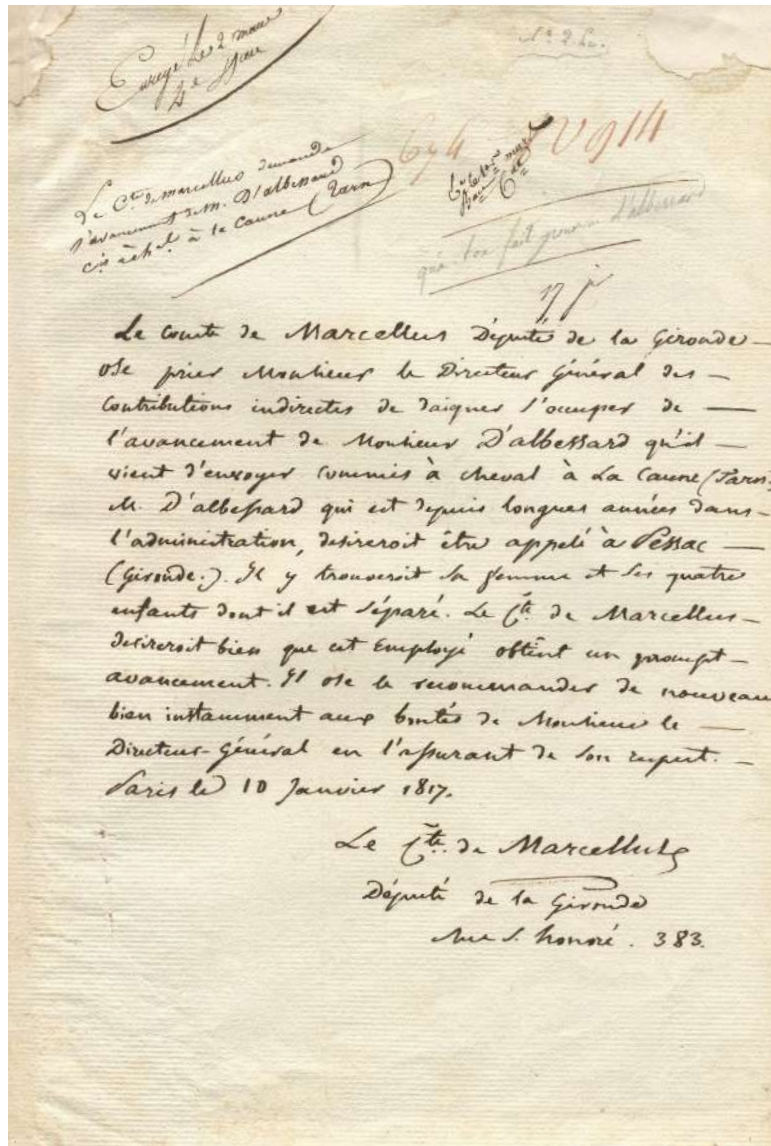 Enregé le 2 mars
4e Don
674
V914
Le Cte de marcellus demande
l'avancement de M. D'albessard
cis à chal à la Caune (Tarn)
qu'a-t-on fait pour m d'albessard
17 jr
Le comte de Marcellus Député de la Gironde —
ose prier Monsieur le Directeur Général des —
Contributions indirectes de daigner s'occuper de —
l'avancement de Monsieur D'albessard qu'il —
vient d'envoyer commis à cheval à La Caune (Tarn)
M. D'albessard qui est depuis longues années dans —
l'administration, desireroit être appelé à Pessac —
(Gironde.). Il y trouveroit sa femme et ses quatre
enfants dont il est séparé. Le Cte. de Marcellus —
desireroit bien que cet Employé obtînt un prompt —
avancement. Il ose le recommander de nouveau
bien instamment aux bontés de Monsieur le —
Directeur-Général en l'assurant de son respect. —
Paris le 10 Janvier 1817.
Le Cte. de Marcellus
Député de la Gironde
rue S. honoré. 383.